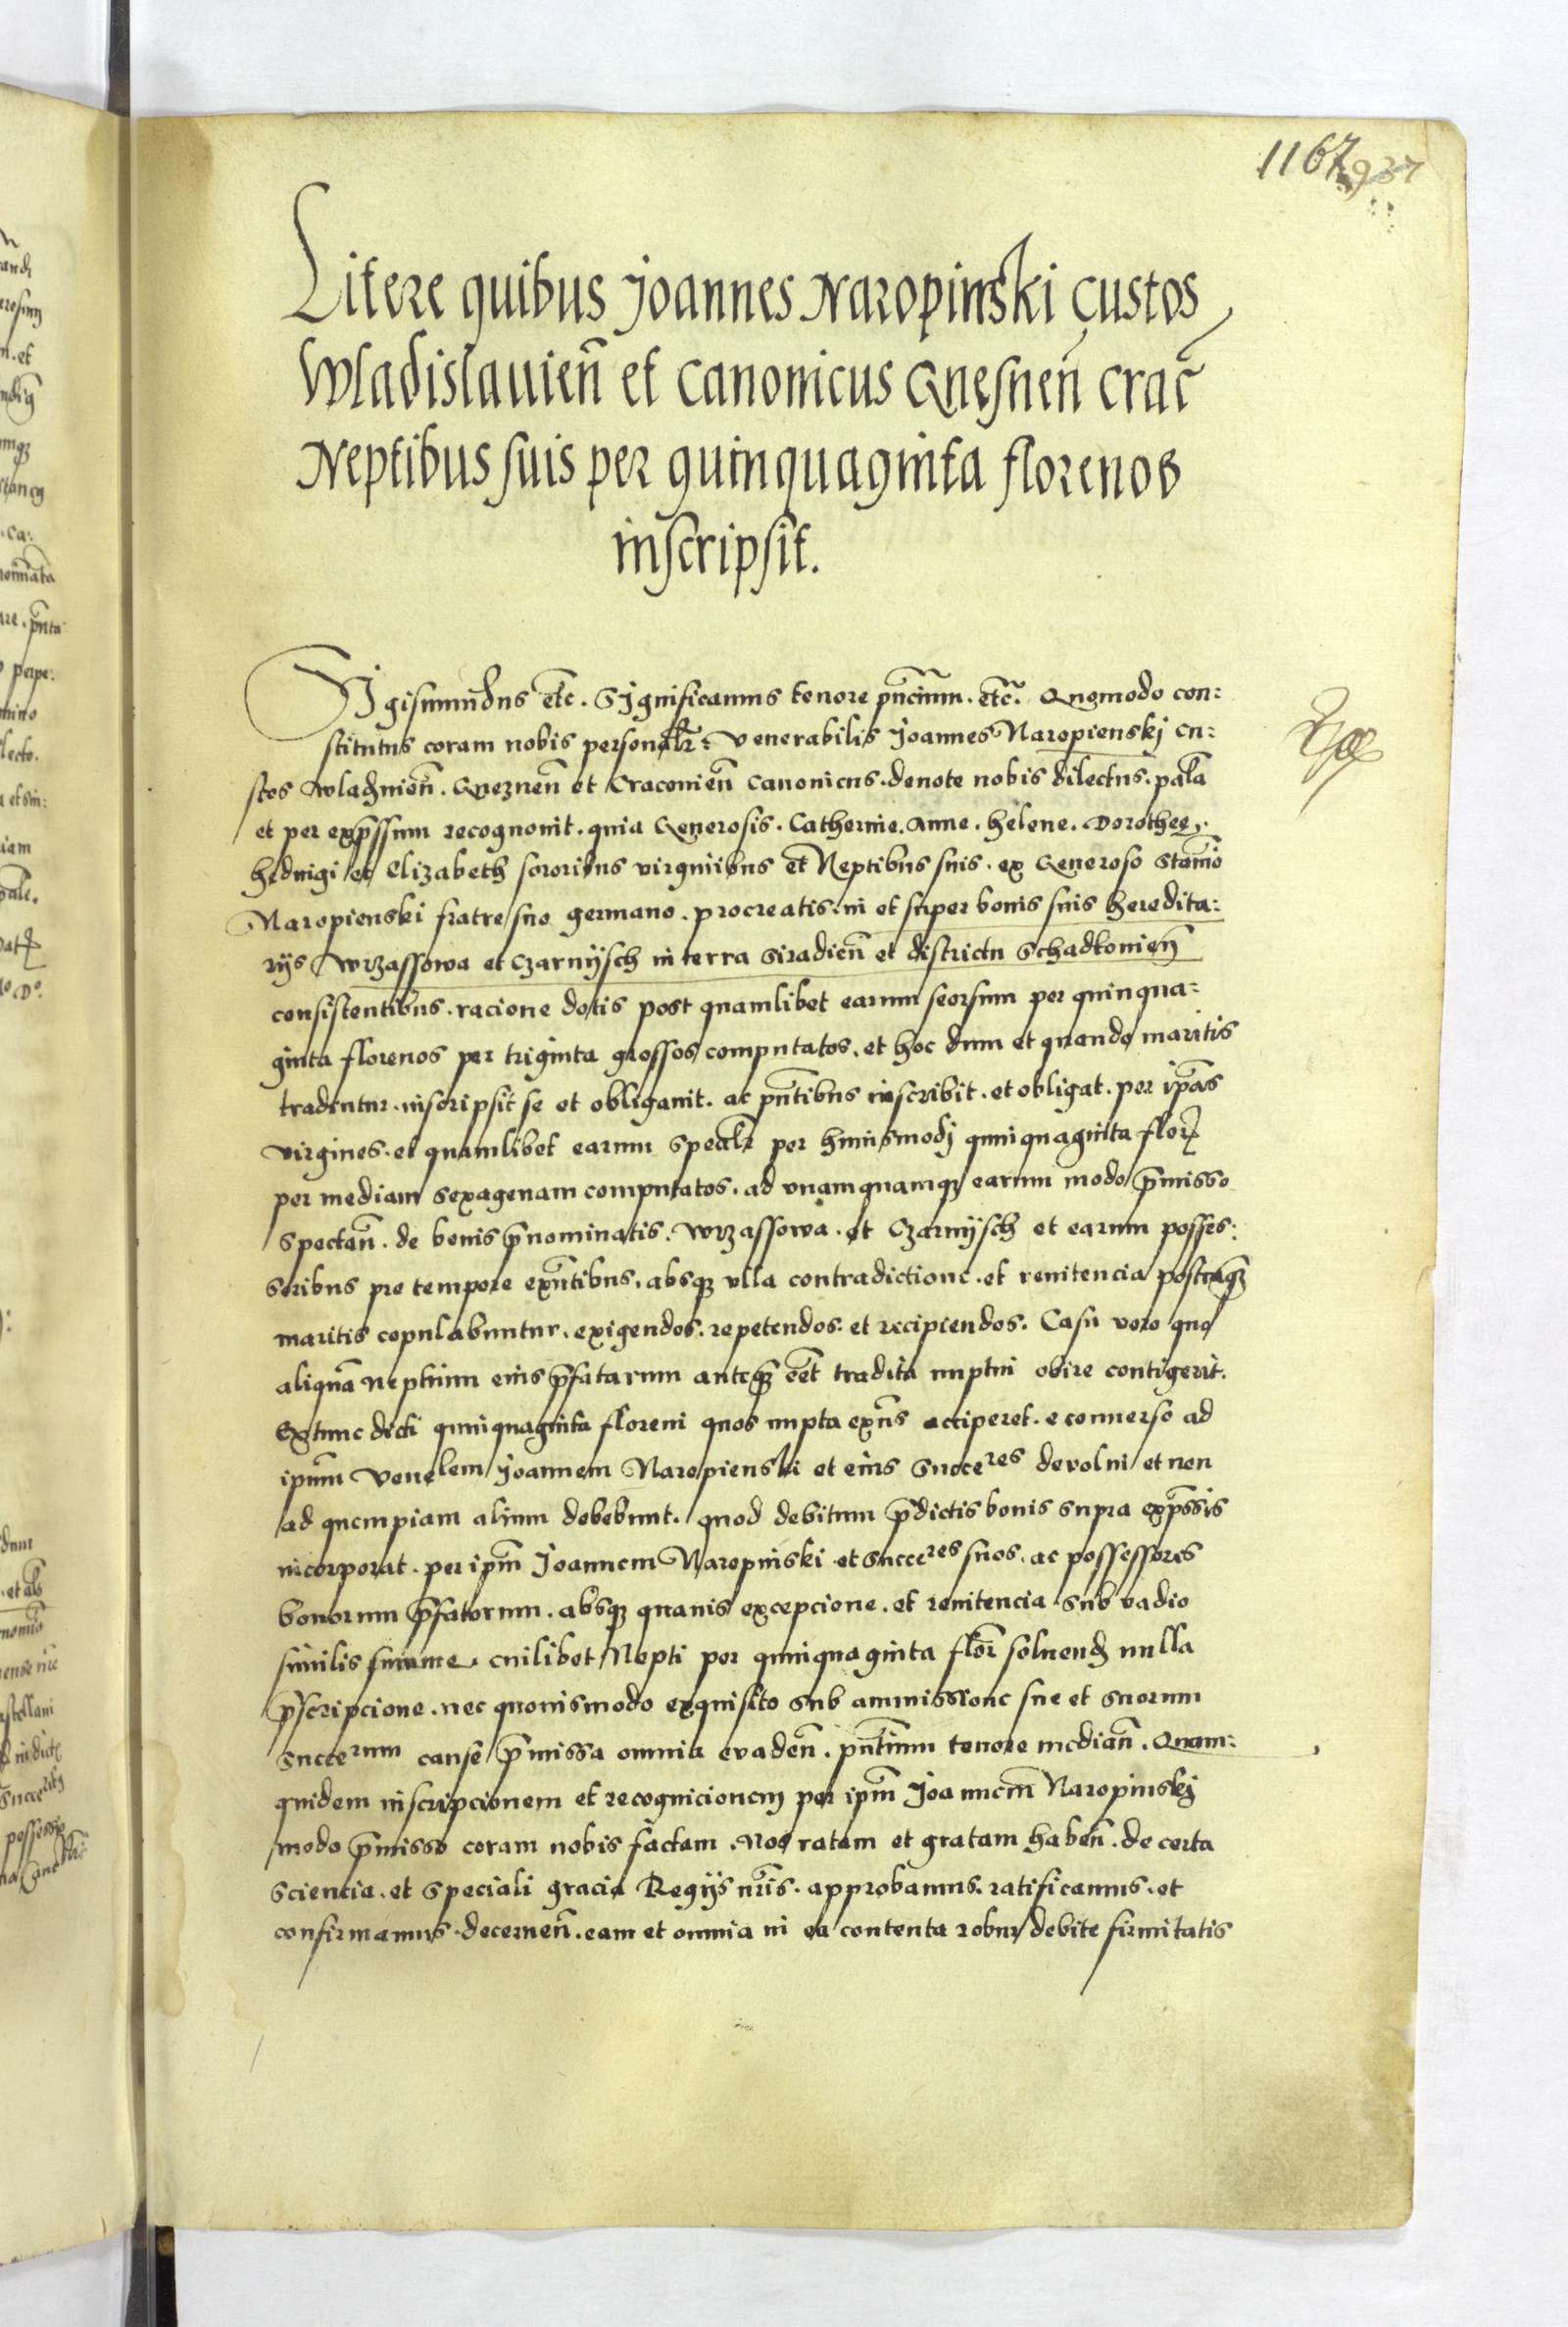 1167 937
Litere quibus Joannes Naropinski Custos
Wladislauien̄ et Canonicus Gnesnen̄ Crac̄
Neptibus suis per quinquaginta florenos
inscripsit.
Sigismundus etc̄. Significamus tenore pn̄cium. etc̄. Quomodo con:
stitutus coram nobis personalr̄: Venerabilis Joannes Naropienskj Cu:
stos Wladuien̄. Gneznen̄ et Cracouien̄ Canonicus. deuote nobis dilectus. palā
et per exp̄ssum recognouit. quia Generosis. Catherine. Anne. helene. Dorothee.
heduigi et Elizabeth sororibus virginibus et Neptibus suis. ex Generoso Stan̄io
Naropienski fratre suo germano. procreatis. in et super bonis suis heredita:
rijs Wrzassowa et Czarnijsch in terra Siradien̄ et districtu Schadkouien̄
consistentibus. racione dotis post quamlibet earum seorsum per quinqua:
ginta florenos per triginta grossos computatos. et hoc dum et quando maritis
tradentur. inscripsit se et obligauit. ac pn̄tibus inscribit. et obligat. per ip̄as
virgines. et quamlibet earum spealr̄ per huiusmodj quinquaginta flor̄
per mediam sexagenam computatos. ad vnamquamq; earum modo p̄misso
spectan̄. de bonis p̄nominatis. Wrzassowa. et Czarnijsch et earum posses:
soribus pro tempore exn̄tibus. absq; vlla contradictione. et renitencia postq̄q;
maritis copulabuntur. exigendos. repetendos. et recipiendos. Casu vero quo
aliquā neptium eius p̄fatarum anteq̄; eēt tradita nuptui obire contigerit.
Extunc dicti quinquaginta floreni quos nupta exn̄s acciperet. e conuerso ad
ipum̄ Venelem Joannem Naropienski et eius succeres deuolui et non
ad quempiam alium debebunt. quod debitum p̄dictis bonis supra exp̄ssis
incorporat. per ipm̄ Joannem Naropinski et succeres suos. ac possessores
bonorum p̄fatorum. absq; quauis excepcione. et renitencia sub vadio
similis summe. cuilibet Nepti per quinquaginta flor̄ soluend nulla
p̄scripcione. nec quouismodo exquisito sub ammissione sue et suorum
succerum cause p̄missa omnia euaden̄. pn̄tium tenore median̄. Quam:
quidem inscripcionem et recognicionem per ipm̄ Joannem̄ Naropinskj
modo p̄misso coram nobis factam. Nos ratam et gratam haben̄. de certa
sciencia. et speciali gracia Regijs nr̄is. approbamus. ratificamus. et
confirmamus. decernen̄. eam et omnia in ea contenta robur debite firmitatis